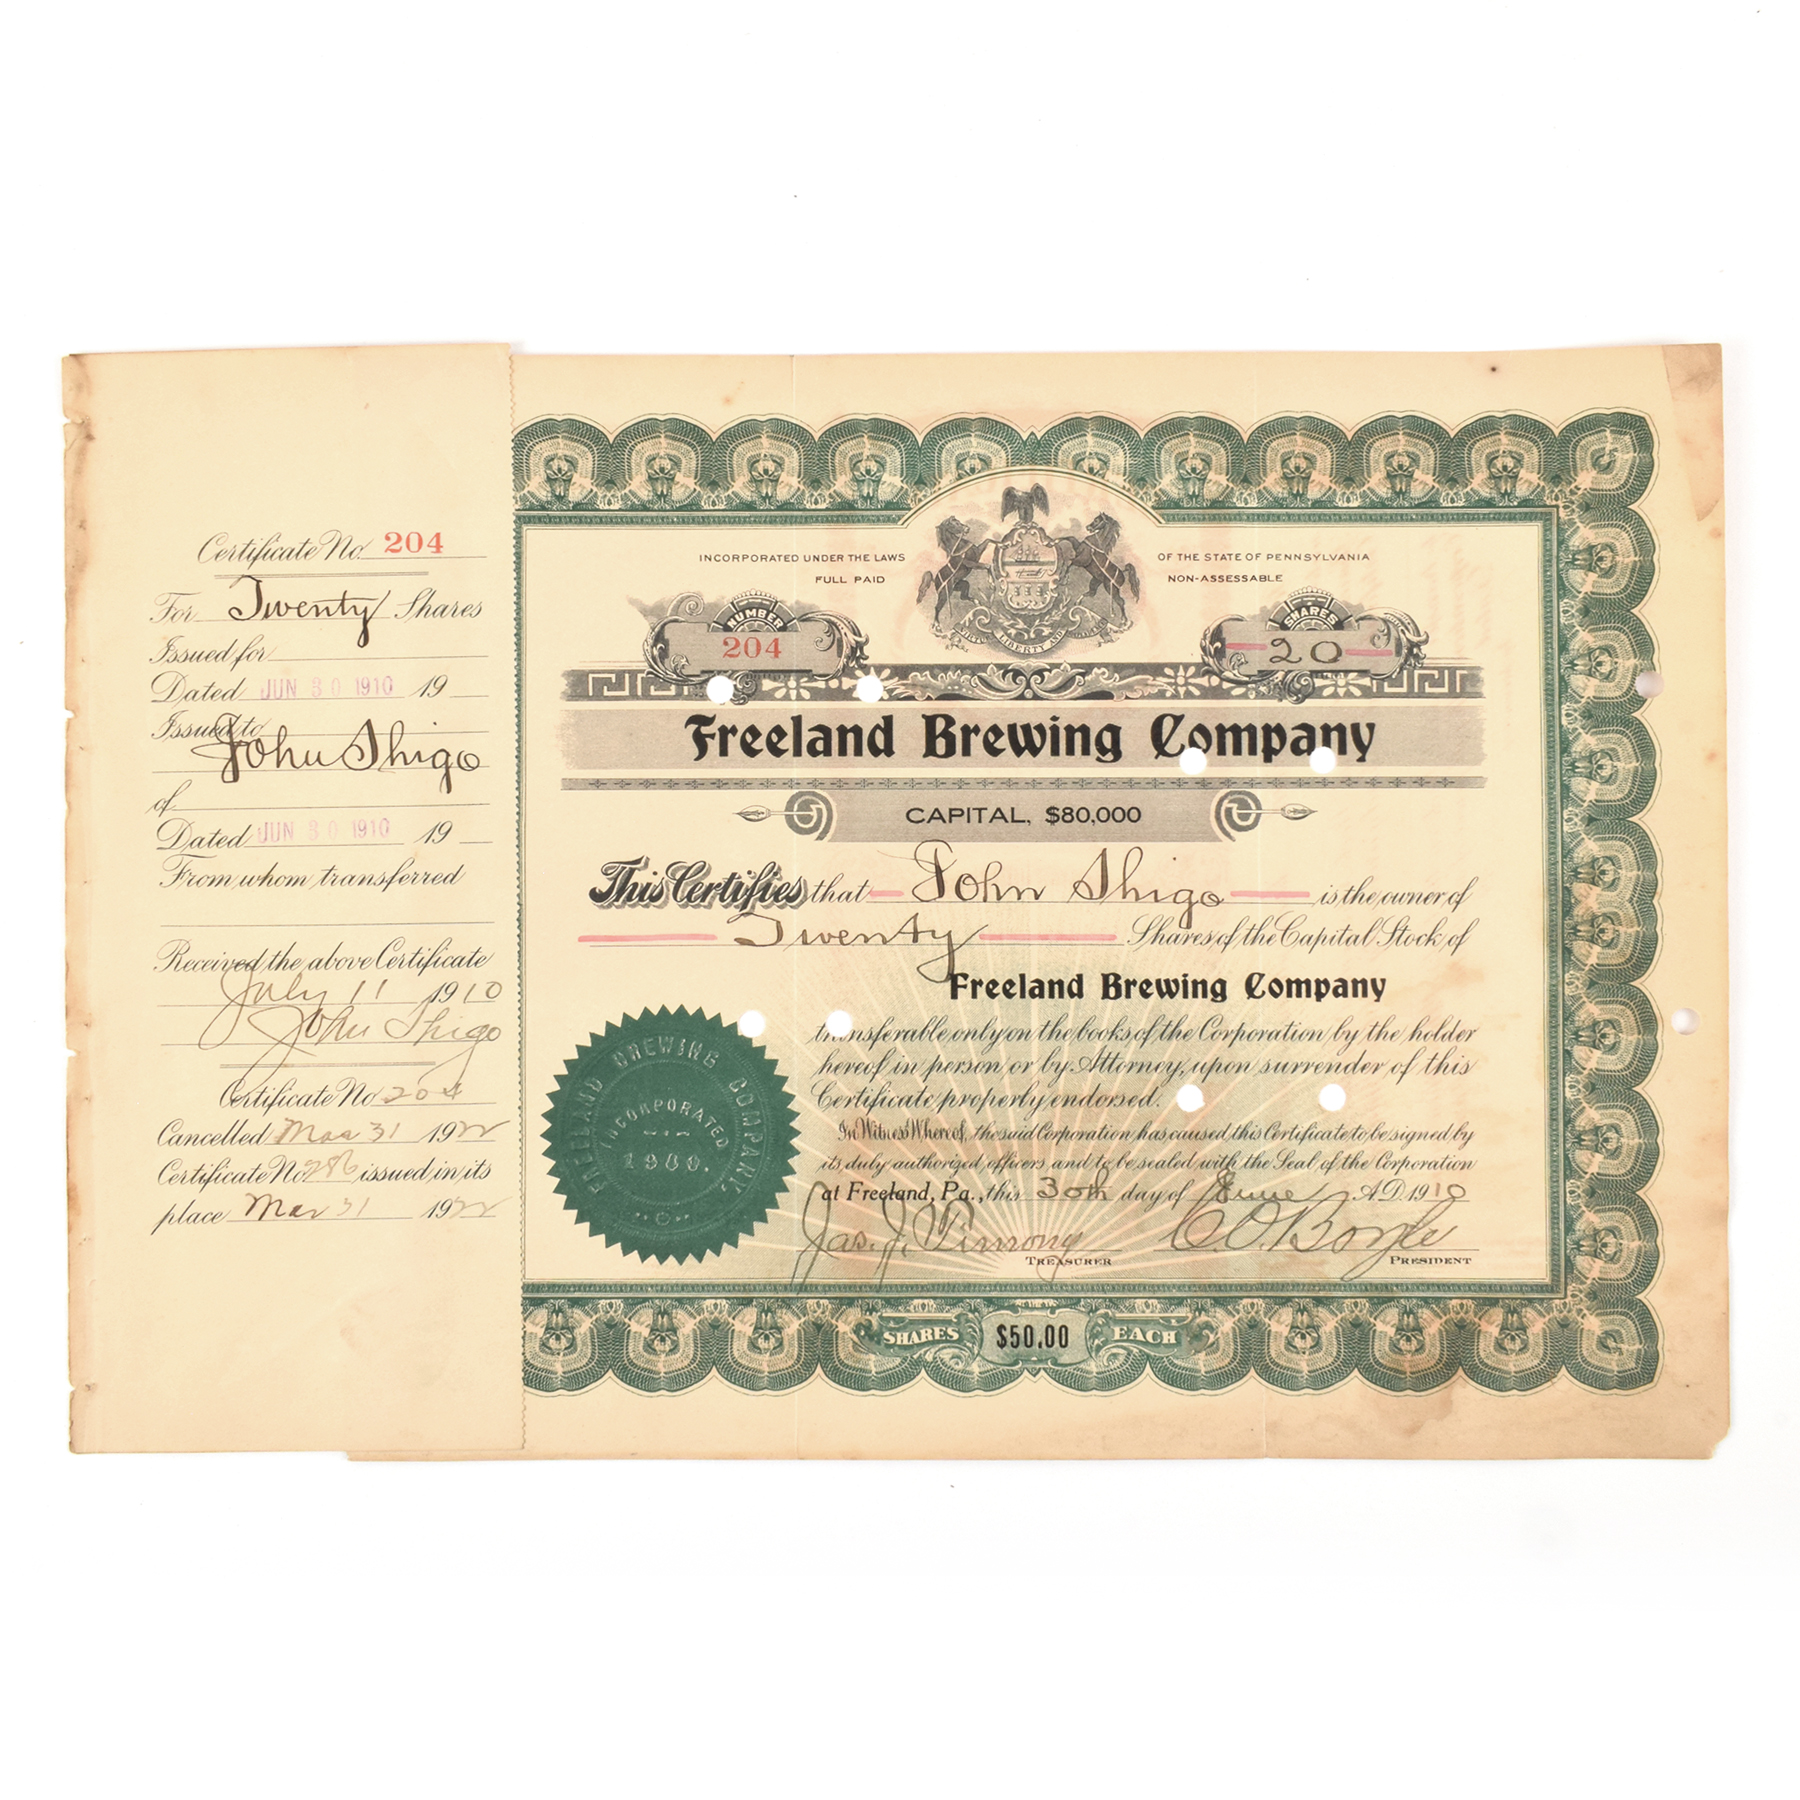 Certificate No. 204
For Twenty Shares
Issued for
Dated JUN 30 1910 19
Issued to
John Shigo
of
Dated JUN 30 1910 19
From whom transferred
Received the above Certificate
July 11 1910
John Shigo
Certificate No 204
Cancelled Mar 31 1922
Certificate No 286 issued in its
place Mar 31 1922
INCORPORATED UNDER THE LAWS OF THE STATE OF PENNSYLVANIA
FULL PAID NON-ASSESSABLE
NUMBER
204
SHARES
20
VIRTUE LIBERTY AND
Freeland Brewing Company
CAPITAL, $80,000
This Certifies that John Shigo is the owner of
Twenty Shares of the Capital Stock of
Freeland Brewing Company
transferable only on the books of the Corporation by the holder
hereof in person or by Attorney, upon surrender of this
Certificate properly endorsed.
In Witness Whereof, the said Corporation has caused this Certificate to be signed by
its duly authorized officers and to be sealed with the Seal of the Corporation
at Freeland, Pa., this 30th day of June A.D. 1910
Jas. J. Timony C. O. Boyle
TREASURER PRESIDENT
FREELAND BREWING COMPANY.
INCORPORATED
SHARES $50.00 EACH